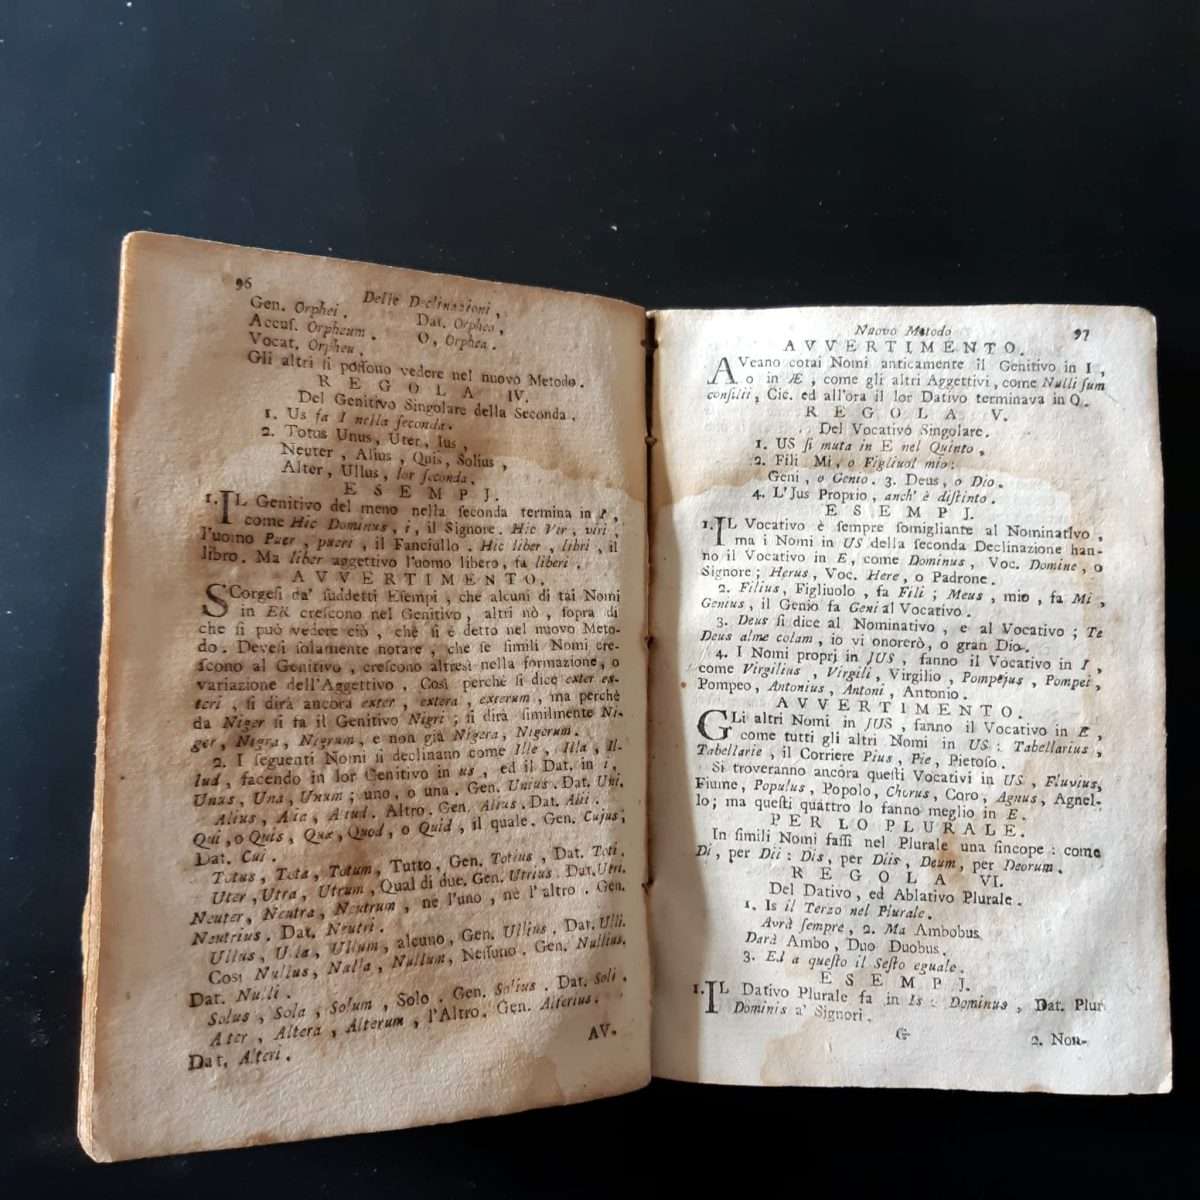 96
Delle Declinazioni,
Gen. Orphei. Dat. Orpheo,
Accuſ. Orpheum. O, Orpheu.
Vocat, Orpheu.
Gli altri ſi poſſono vedere nel nuovo Metodo.
REGOLA IV.
Del Genitivo Singolare della Seconda.
1. Us fa I nella ſeconda.
2. Totus Unus, Uter, Ius,
Neuter, Alius, Quis, Solius,
Alter, Ullus, lor ſeconda.
ESEMPJ.
1. IL Genitivo del meno nella ſeconda termina in I,
come Hic Dominus, i, il Signore. Hic Vir, viri;
l'uomo Puer, pueri, il Fanciullo. Hic liber, libri, il
libro. Ma liber aggettivo l'uomo libero, fa liberi.
AVVERTIMENTO.
SCorgeſi da' ſuddetti Eſempi, che alcuni di tai Nomi
in ER creſcono nel Genitivo, altri nò, ſopra di
che ſi può vedere ciò, che ſi è detto nel nuovo Meto-
do. Deveſi ſolamente notare, che ſe ſimili Nomi cre-
ſcono al Genitivo, creſcono altresì nella formazione, o
variazione dell'Aggettivo. Così perchè ſi dice exter ex-
teri, ſi dirà ancora exter, extera, exterum, ma perchè
da Niger ſi fa il Genitivo Nigri; ſi dirà ſimilmente Ni-
ger, Nigra, Nigrum, e non già Nigera, Nigerum.
2. I ſeguenti Nomi ſi declinano come Ille, Illa, Il-
lud, facendo in lor Genitivo in us, ed il Dat. in i,
Unus, Una, Unum; uno, o una. Gen. Unius. Dat. Uni.
Alius, Alia, Aliud. Altro. Gen. Alius. Dat. Alii.
Qui, o Quis, Quæ, Quod, o Quid, il quale. Gen. Cujus;
Dat. Cui.
Totus, Tota, Totum, Tutto, Gen. Totius, Dat. Toti.
Uter, Utra, Utrum, Qual di due, Gen. Utrius. Dat. Utri.
Neuter, Neutra, Neutrum, nè l'uno, nè l'altro. Gen.
Neutrius. Dat. Neutri.
Ullus, Ulla, Ullum, alcuno, Gen. Ullius. Dat. Ulli.
Così Nullus, Nulla, Nullum, Neſſuno. Gen. Nullius.
Dat. Nulli.
Solus, Sola, Solum, Solo. Gen. Solius. Dat. Soli.
Alter, Altera, Alterum, l'Altro. Gen. Alterius.
Dat. Alteri.
AV-
Nuovo Metodo 97
AVVERTIMENTO.
AVeano cotai Nomi anticamente il Genitivo in I,
o in Æ, come gli altri Aggettivi, come Nulli ſum
conſilii, Cic. ed all'ora il lor Dativo terminava in O.
REGOLA V.
Del Vocativo Singolare.
1. US ſi muta in E nel Quinto,
2. Fili Mi, o Figliuol mio:
Geni, o Genio. 3. Deus, o Dio.
4. L'Jus Proprio, anch' è diſtinto.
ESEMPJ.
1. IL Vocativo è ſempre ſomigliante al Nominativo,
ma i Nomi in US della ſeconda Declinazione han-
no il Vocativo in E, come Dominus, Voc. Domine, o
Signore; Herus, Voc. Here, o Padrone.
2. Filius, Figliuolo, fa Fili; Meus, mio, fa Mi,
Genius, il Genio fa Geni al Vocativo.
3. Deus ſi dice al Nominativo, e al Vocativo; Te
Deus alme colam, io vi onorerò, o gran Dio.
4. I Nomi proprj in JUS, fanno il Vocativo in I,
come Virgilius, Virgili, Virgilio, Pompejus, Pompei,
Pompeo, Antonius, Antoni, Antonio.
AVVERTIMENTO.
GLi altri Nomi in JUS, fanno il Vocativo in E,
come tutti gli altri Nomi in US: Tabellarius,
Tabellarie, il Corriere Pius, Pie, Pietoſo.
Si troveranno ancora queſti Vocativi in US, Fluvius,
Fiume, Populus, Popolo, Chorus, Coro, Agnus, Agnel-
lo; ma queſti quattro lo fanno meglio in E.
PER LO PLURALE.
In ſimili Nomi faſſi nel Plurale una ſincope: come
Di, per Dii: Dis, per Diis, Deum, per Deorum.
REGOLA VI.
Del Dativo, ed Ablativo Plurale.
1. Is il Terzo nel Plurale.
Avrà ſempre, 2. Ma Ambobus
Darà Ambo, Duo Duobus.
3. Ed a queſto il Seſto eguale.
ESEMPJ.
1. IL Dativo Plurale fa in Is: Dominus, Dat. Plur.
Dominis a' Signori.
G
2. Non-